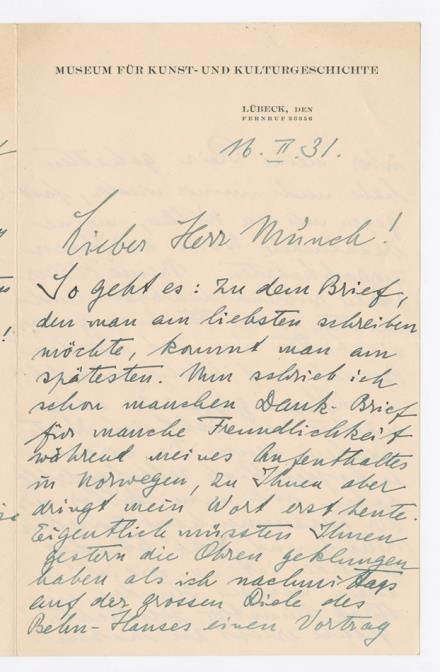 MUSEUM FÜR KUNST- UND KULTURGESCHICHTE
LÜBECK, DEN
FERNRUF
16. II. 31.
Lieber Herr Münch!
So geht es: Zu dem Brief,
den man am liebsten schreiben
möchte, kommt man am
spätesten. Nun schrieb ich
schon manchen Dank-Brief
für manche Freundlichkeit
während meines Aufenthaltes
in Norwegen, zu Ihnen aber
dringt mein Wort erst heute.
Eigentlich müssten Ihnen
gestern die Ohren geklungen
haben als ich nachmittags
auf der grossen Diele des
Behn-Hauses einen Vortrag